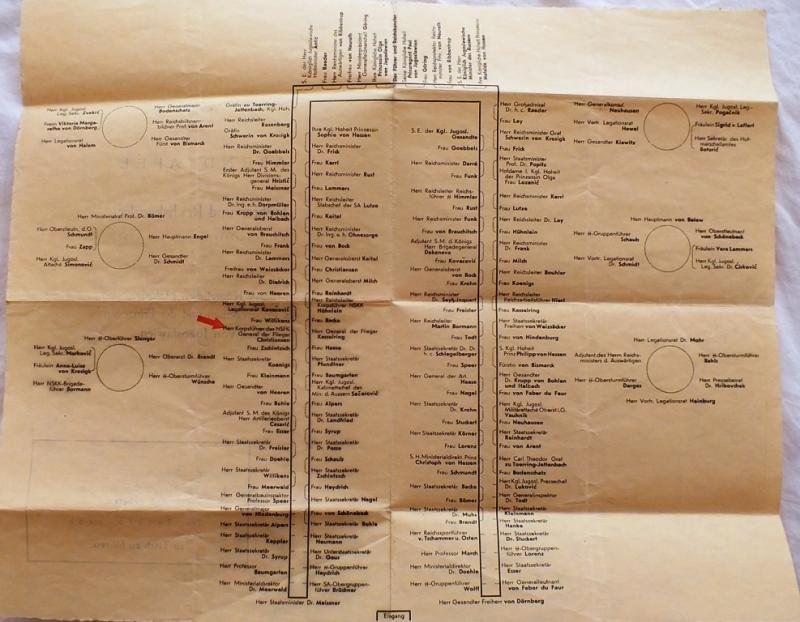 Herr Generalmann
Bodenschatz
Herr Reichsbühnen-
bildner Prof. von Arent
Herr Gesandter
Fürst von Bismarck
Frein Viktoria Marga-
rethe von Dörnberg
Herr Legationsrat
von Halem
Herr Ministerialrat Prof. Dr. Römer
Schmundt
Herr Hauptmann Engel
Frau Zapp
Herr Gesandter
Dr. Schmidt
Herr Kgl. Jugosl.
Attaché Simonović
Herr ᛋᛋ-Oberführer Skinger
Herr Kgl. Jugosl.
Leg. Sekr. Marković
Herr Oberarzt Dr. Brandt
Fräulein Anna-Luise
von Krosigk
Herr ᛋᛋ-Obersturmführer
Wünsche
Herr NSKK-Brigade-
führer Bormann
Gräfin zu Toerring-
Jettenbach, Kgl. Hoh.
Herr Reichsleiter
Rosenberg
Gräfin
Schwerin von Krosigk
Herr Reichsminister
Dr. Goebbels
Frau Himmler
Erster Adjutant S. M. des
Königs Herr Divisions-
general Hristić
Frau Meissner
Herr Reichsminister
Dr. Ing. e. h. Dorpmüller
Frau Krupp von Bohlen
und Halbach
Herr Generaloberst
von Brauchitsch
Frau Frank
Herr Reichsminister
Dr. Lammers
Freifrau von Weizsäcker
Herr Reichsleiter
Dr. Dietrich
Frau von Heeren
Herr Kgl. Jugosl.
Legationsrat Kovacević
Frau Willikens
Herr Korpsführer des NSFK
General der Flieger
Christiansen
Frau Zschintzsch
Herr Staatssekretär
Koenigs
Frau Kleinmann
Herr Gesandter
von Heeren
Frau Bohle
Adjutant S. M. des Königs
Herr Artillerieoberst
Cesarić
Frau Esser
Herr Staatssekretär
Dr. Freisler
Frau Doehle
Herr Staatssekretär
Willikens
Frau Meerwald
Herr Generalbauinspektor
Professor Speer
Herr Generalmajor
von Hindenburg
Herr Staatssekretär Alpers
Herr Staatssekretär
Keppler
Herr Staatssekretär
Dr. Syrup
Herr Professor
Baumgarten
Herr Ministerialdirektor
Dr. Meerwald
Herr Staatsminister Dr. Meissner
Ihre Kgl. Hoheit Prinzessin
Sophie von Hessen
Herr Reichsminister
Dr. Frick
Frau Kerrl
Herr Reichsminister Rust
Frau Lammers
Herr Reichsleiter
Stabschef der SA. Lutze
Frau Keitel
Herr Reichsminister
Dr. Ing. e. h. Ohnesorge
Frau von Bock
Herr Generaloberst Keitel
Frau Christiansen
Herr Generaloberst Milch
Frau Reinhardt
Herr Reichsleiter
Korpsführer NSKK
Hühnlein
Frau Backe
Herr General der Flieger
Kesselring
Frau Haase
Herr Staatssekretär
Pfundtner
Frau Baumgarten
Herr Kgl. Jugosl.
Kabinettschef des
Min. d. Äussern Sečerović
Frau Alpers
Herr Staatssekretär
Dr. Landfried
Frau Syrup
Herr Staatssekretär
Dr. Posse
Frau Schaub
Herr Staatssekretär
Zschintzsch
Frau Heydrich
Herr Staatssekretär Nagel
Frau von Schönebeck
Herr Staatssekretär Bohle
Herr Staatssekretär
Neumann
Herr Unterstaatssekretär
Dr. Gaus
Herr ᛋᛋ-Gruppenführer
Heydrich
Herr SA-Obergruppen-
führer Brückner
S. E. der Herr
Königlich Jugoslawische
Frau Raeder
Herr Reichsminister des
Auswärtigen von Ribbentrop
Frau von Neurath
Herr Ministerpräsident
Generalfeldmarschall Göring
Ihre Königliche Hoheit
Prinzessin Olga
von Jugoslawien
Der Führer und Reichskanzler
Seine Königliche Hoheit
Prinzregent Paul
von Jugoslawien
Frau Göring
Herr Reichsminister Frei-
herr von Neurath
Frau von Ribbentrop
S. E. der Herr
Königlich Jugoslawische
Minister des Äussern
Ihre Königliche Hoheit Prinzessin
Mafalda von Hessen
S. E. der Kgl. Jugosl.
Gesandte
Frau Goebbels
Herr Reichsminister Darré
Frau Funk
Herr Reichsleiter Reichs-
führer ᛋᛋ Himmler
Frau Rust
Herr Reichsminister Funk
Frau von Brauchitsch
Adjutant S.M. d. Königs
Herr Brigadegeneral
Dekaneva
Frau Kovacević
Herr Generaloberst
von Bock
Frau Krohn
Herr Reichsminister
Dr. Seyß-Inquart
Frau Freisler
Herr Reichsleiter
Martin Bormann
Frau Todt
Herr Staatssekretär Dr. Dr.
h. c. Schlegelberger
Frau Speer
Herr General der Art.
Haase
Frau Nagel
Herr Staatssekretär
Dr. Krohn
Frau Stuckart
Herr Staatssekretär Körner
Frau Lorenz
S. H. Ministerialdirekt. Prinz
Christoph von Hessen
Frau Schmundt
Herr Staatssekretär Backe
Frau Römer
Herr Staatssekretär
Dr. Muhs
Frau Brandt
Herr Reichssportführer
v. Tschammer u. Osten
Herr Professor March
Herr Ministerialdirektor
Dr. Doehle
Herr ᛋᛋ-Gruppenführer
Wolff
Herr Gesandter Freiherr von Dörnberg
Herr Großadmiral
Dr. h. c. Raeder
Frau Ley
Herr Reichsminister Graf
Schwerin von Krosigk
Frau Frick
Herr Staatsminister
Prof. Dr. Popitz
Hofdame I. Kgl. Hoheit
der Prinzessin Olga
Frau Lozanić
Herr Reichsminister Kerrl
Frau Lutze
Herr Reichsleiter Dr. Ley
Frau Hühnlein
Herr Reichsminister
Dr. Frank
Frau Milch
Herr Reichsleiter Bouhler
Frau Koenigs
Frau Kesselring
Herr Staatssekretär
Freiherr von Weizsäcker
Frau von Hindenburg
S. Kgl. Hoheit
Prinz Philipp von Hessen
Fürstin von Bismarck
Herr Gesandter
Dr. Krupp von Bohlen
und Halbach
Frau von Faber du Faur
Herr Kgl. Jugosl.
Militärattaché Oberst i.G.
Vauhnik
Frau Neuhausen
Herr Staatssekretär
Reinhardt
Frau von Arent
Herr Carl Theodor Graf
zu Toerring-Jettenbach
Frau Bodenschatz
Herr Kgl. Jugosl. Pressechef
Dr. Luković
Herr Generalinspektor
Dr. Todt
Herr Staatssekretär
Kleinmann
Herr Staatssekretär
Hanke
Herr Staatssekretär
Dr. Stuckart
Herr ᛋᛋ-Obergruppen-
führer Lorenz
Herr Staatssekretär
Esser
Herr Generalleutnant
von Faber du Faur
Herr Generalkonsul
Neuhausen
Herr Kgl. Jugosl. Leg.-
Sekr. Pogačnik
Herr Vortr. Legationsrat
Hewel
Fräulein Sigrid v. Laffert
Herr Gesandter Kiewitz
Herr Sekretär des Hof-
marschallamtes
Herr Hauptmann von Below
Herr ᛋᛋ-Gruppenführer
Schaub
Herr Oberstleutnant
von Schönebeck
Fräulein Vera Lammers
Herr Vortr. Legationsrat
Dr. Schmidt
Herr Kgl. Jugosl.
Leg. Sekr. Dr. Cirković
Herr Legationsrat Dr. Mohr
Adjutant des Herrn Reichs-
ministers d. Auswärtigen
Herr ᛋᛋ-Obersturmführer
Bahls
Herr ᛋᛋ-Obersturmführer
Darges
Herr Pressebeirat
Dr. Hribovschek
Herr Vortr. Legationsrat Heinburg
Eingang